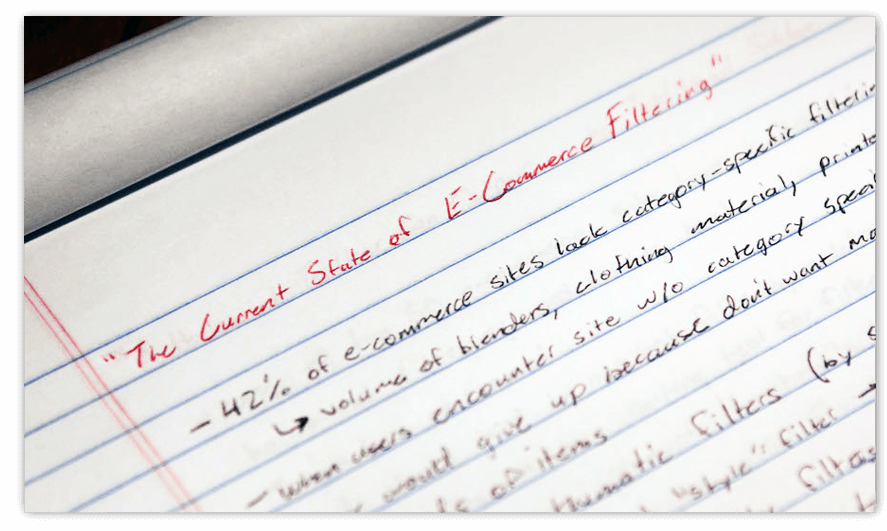 "The Current State of E-Commerce Filtering"
- 42% of e-commerce sites lack category-specific
↳ volume of blenders, clothing material,
- when users encounter site w/o category
would give up because don't want
of items
thematic filters (by
"style" filter →
filters